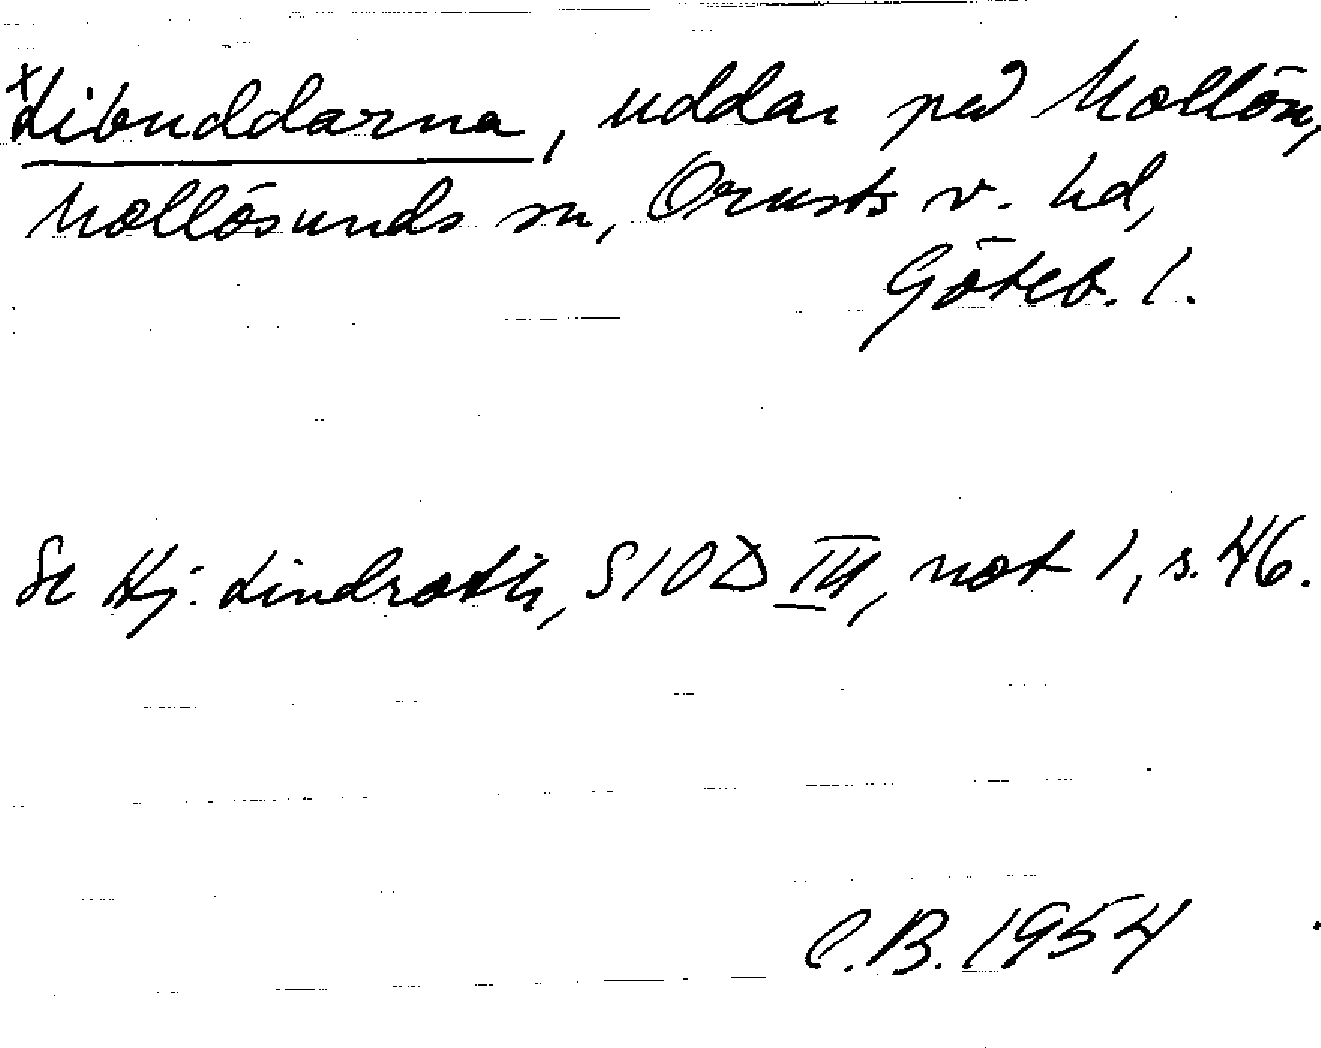 ×Libuddarna, uddar på Mollön,
Mollösunds sn, Orusts v. hd,
Göteb. l.
Se Hj. Lindroth, SIOD III, not 1, s. 46.
C.B. 1954